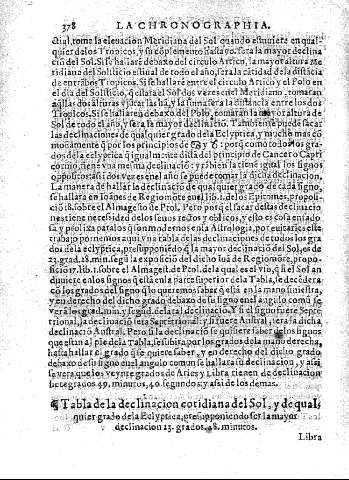 378 LA CHRONOGRAPHIA.
cial, tome la elevacion Meridiana del Sol quando estuuiere en qual-
quier de los Tropicos, y su cōplemento hasta 90. sera la mayor declina
ciō del Sol. Si se hallare debaxo del circulo Artico, la mayor altura Me
ridiana del Solsticio estiual de todo el año, sera la cātidad de la distācia
de entrābos Tropicos. Si se hallare entre el circulo Artico y el Polo en
el dia del Solsticio, q̄ estara el Sol dos vezes en el Meridiano, tomaran
aq̄llas dos alturas y jūtarlas hā, y la suma sera la distancia entre los dos
Tropicos. Si se hallare en debaxo del Polo, tomaran la mayor altura de
Sol de todo el año, y sera la mayor declinaciō. Tambien se puede sacar
las declinaciones de qualquier grado de la Eclyptica, y mucho mas cō
modamente q̄ por los principios de ♋ y ♑: porq̄ como todos los gra-
dos de la eclyptica q̄ igualmente distā del principio de Cancro o Capri
cornio, tiene vna mesma declinaciō: y tābien la tiene igual los signos
oppositos assi dos vezes en el año se puede tomar la dicha declinacion.
La manera de hallar la declinaciō de qualquier grado de cada signo,
se hallara en Ioānes de Regiomōte en el lib. 1. de los Epitomes, proposi-
ciō 18. sobre el Almagesto de Ptol. Pero por q̄ el sacar estas declinacio-
nes tiene necessidad de los senos rectos y obliquos, y esto es cosa enfado
sa y prolixa para los q̄ son modernos en la Astrologia, por euitarles este
trabajo pornemos aqui vna tabla de las declinaciones de todos los gra
dos de la eclyptica, presupponiēdo q̄ la mayor declinaciō del Sol, es de
23. grad. 28. min. segū la exposiciō del dicho Iuā de Regiomōte, propo-
sicio 17. lib. 1. sobre el Almagest. de Ptol. de la qual es el vso, q̄ si el Sol an
duuiere en los signos q̄ estā en la parte superior de la Tabla, se decēdera
cō los grados del signo q̄ lo queremos saber q̄ esta en la mano siniestra,
y en derecho del dicho grado debaxo de su signo en el angulo comū se
vera los grad. min. y segūd. de la tal declinaciō. Y si el signo fuere Septē-
trional, la declinaciō sera Septētrional, y si fuere Austral, sera la dicha
declinaciō Austral. Pero si la declinaciō se quisiere saber de los signos
que estan al pie de la Tabla, se subira por los grados de la mano derecha,
hasta hallar el grado que se quiere saber, y en derecho del dicho grado
debaxo de su signo en el angulo comun se hallara su declinacion, y assi
se vera que los veynte grados de Aries y Libra tienen de declinacion
siete grados 49. minutos, 40. segundos: y assi de los demas.
¶ Tabla de la declinacion cotidiana del Sol, y de qual-
quier grado de la Eclyptica, presupponiendo ser la mayor
declinacion 23. grados. 28. minutos.
Libra